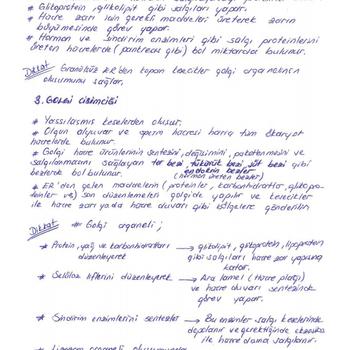 * Glikoprotein, glikolipit gibi salgıları yapar.
* Hücre zarı için gerekli maddeleri üreterek zarın
büyümesinde görev yapar.
* Hormon ve sindirim enzimleri gibi salgı proteinlerini
üreten hücrelerde (pankreas gibi) bol miktarda bulunur.
Dikkat Granüllü ER'den kopan kesecikler golgi organelinin
oluşumunu sağlar.
3. GOLGİ CİSİMCİĞİ
* Yassılaşmış keselerden oluşur.
* Olgun alyuvar ve sperm hücresi hariç tüm ökaryot
hücrelerde bulunur.
* Golgi hücre ürünlerinin sentezini, değişimini, paketlenmesini ve
salgılanmasını sağlayan ter bezi tükürük bezi, süt bezi gibi
bezlerde bol bulunur. endokrin bezler
(hormon üreten bezler)
* ER'den gelen maddelerin (proteinler, karbonhidratlar, gliko-
teinler vs) son düzenlemeleri golgide yapılır ve kesecikler
ile hücre zarı yada hücre duvarı gibi bölgelere gönderilir.
Dikkat * Golgi organeli ;
* Protein, yağ ve karbonhidratları → glikolipit, glikoprotein, lipoprotein
düzenleyerek gibi salgıları hücre zarı yapısına
katar.
* Selüloz liflerini düzenleyerek → Ara lamel (Hücre plağı)
ve hücre duvarı sentezinde
görev yapar.
* Sindirim enzimlerini sentezler → Bu enzimler salgı keselerinde
depolanır ve gerektiğinde ekzositoz
ile hücre dışına salgılanır.